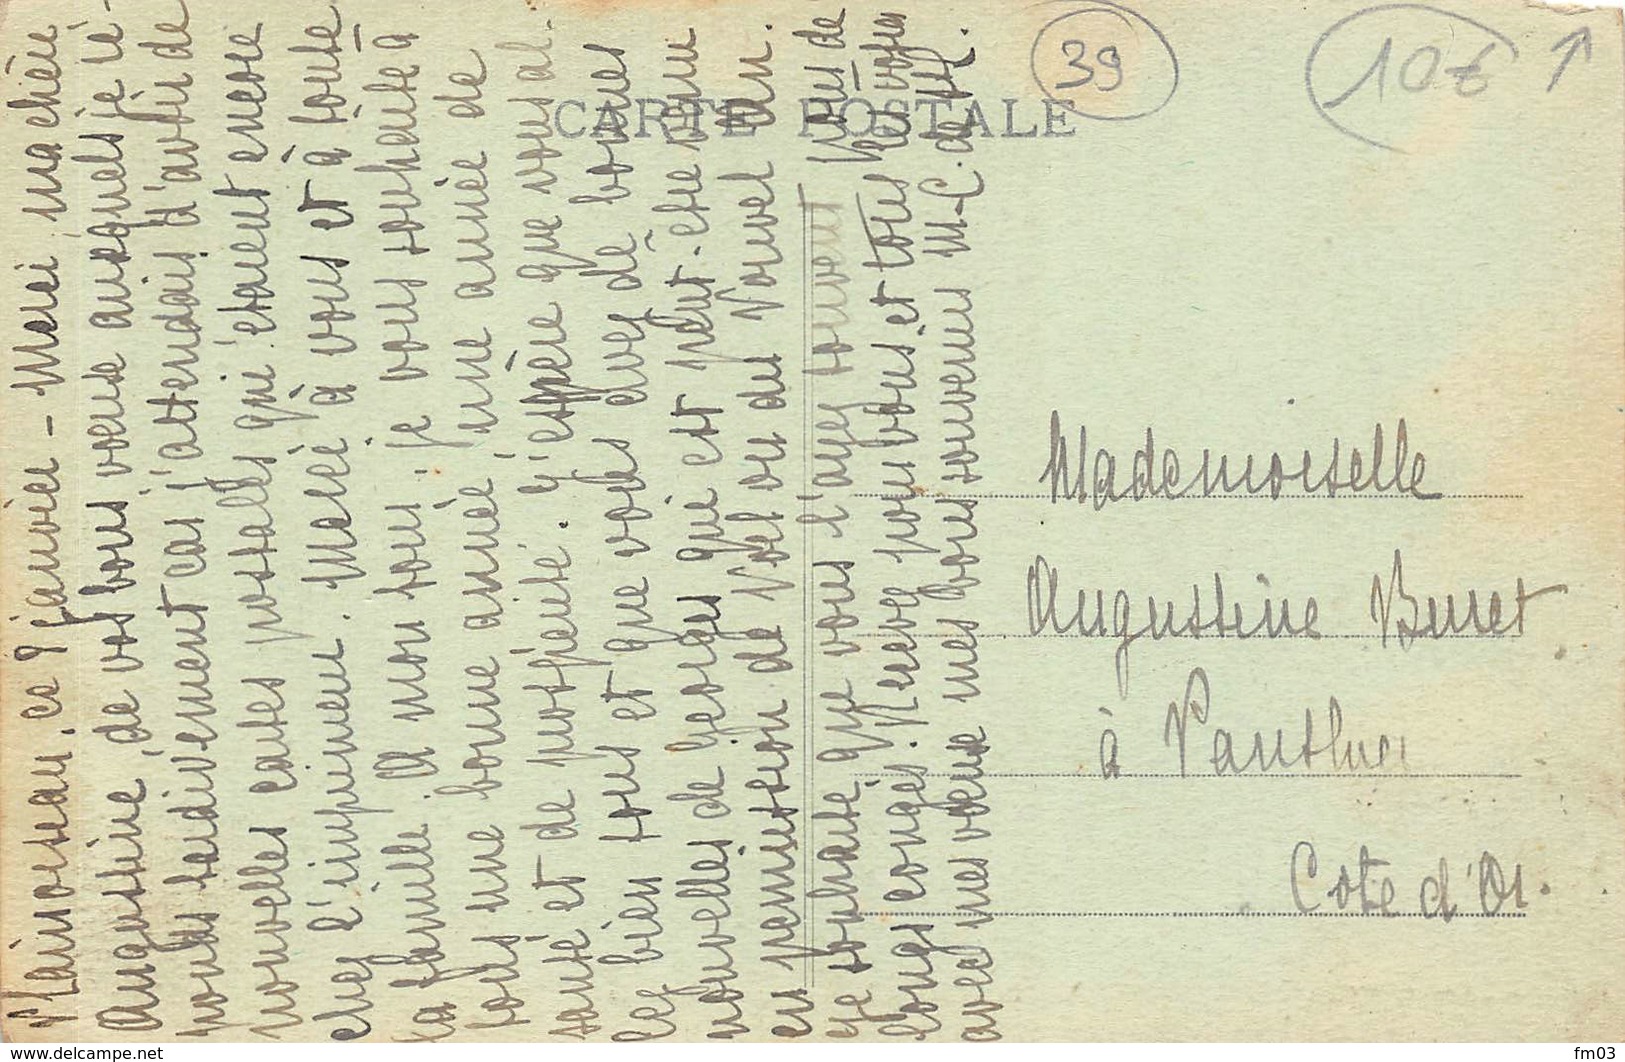 CARTE POSTALE
39
10€
ce 9 janvier - Merci ma chère
Augustine, de vos bons voeux auxquels je ré-
ponds tardivement car j'attendais d'avoir de
nouvelles cartes postales qui étaient encore
chez l'imprimeur. Merci à vous et à toute
la famille. A mon tour, je vous souhaite à
tous une bonne année, une année de
santé et de prospérité. J'espère que vous al-
lez bien tous et que vous avez de bonnes
nouvelles de Georges qui est peut-être venu
en permission de Noël ou du Nouvel an.
Je souhaite que vous l'ayez souvent
longs congés. Recevez pour vous et tous les vôtres
avec mes voeux mes bons souvenirs M-C.
Mademoiselle
Augustine Buret
à Panthier
Cote d'Or.
www.delcampe.net
fm03